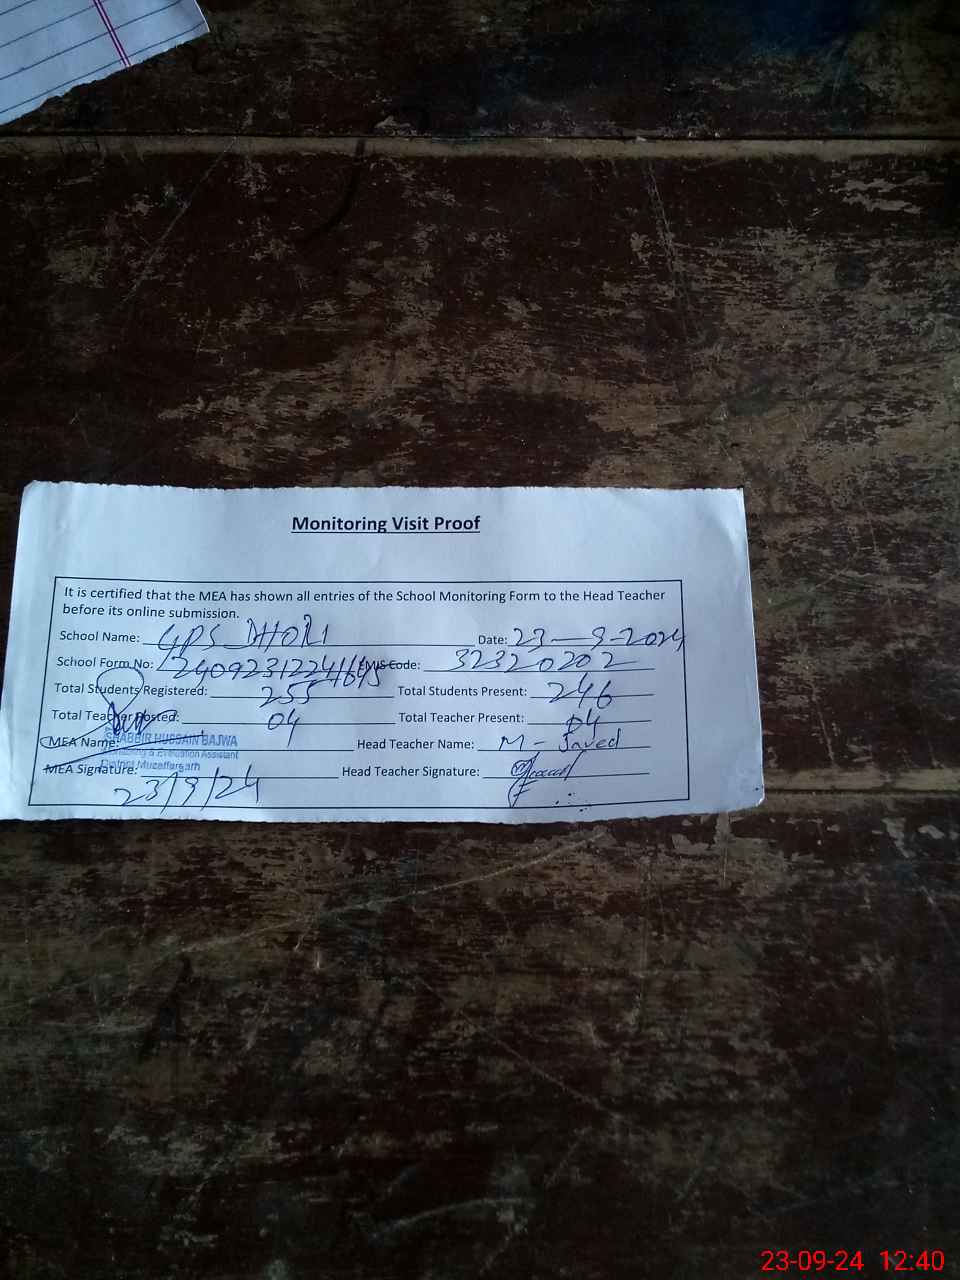 Monitoring Visit Proof
It is certified that the MEA has shown all entries of the School Monitoring Form to the Head Teacher
before its online submission.
School Name: GPS DHORI Date: 23-9-2024
School Form No: EMIS Code: 32320202
Total Students Registered: 255 Total Students Present: 246
Total Teacher Posted: 04 Total Teacher Present: 04
MEA Name: SHABBIR HUSSAIN BAJWA Head Teacher Name: M-Javed
Monitoring & Evaluation Assistant
District Muzaffargarh
MEA Signature: Head Teacher Signature:
23/9/24
23-09-24 12:40